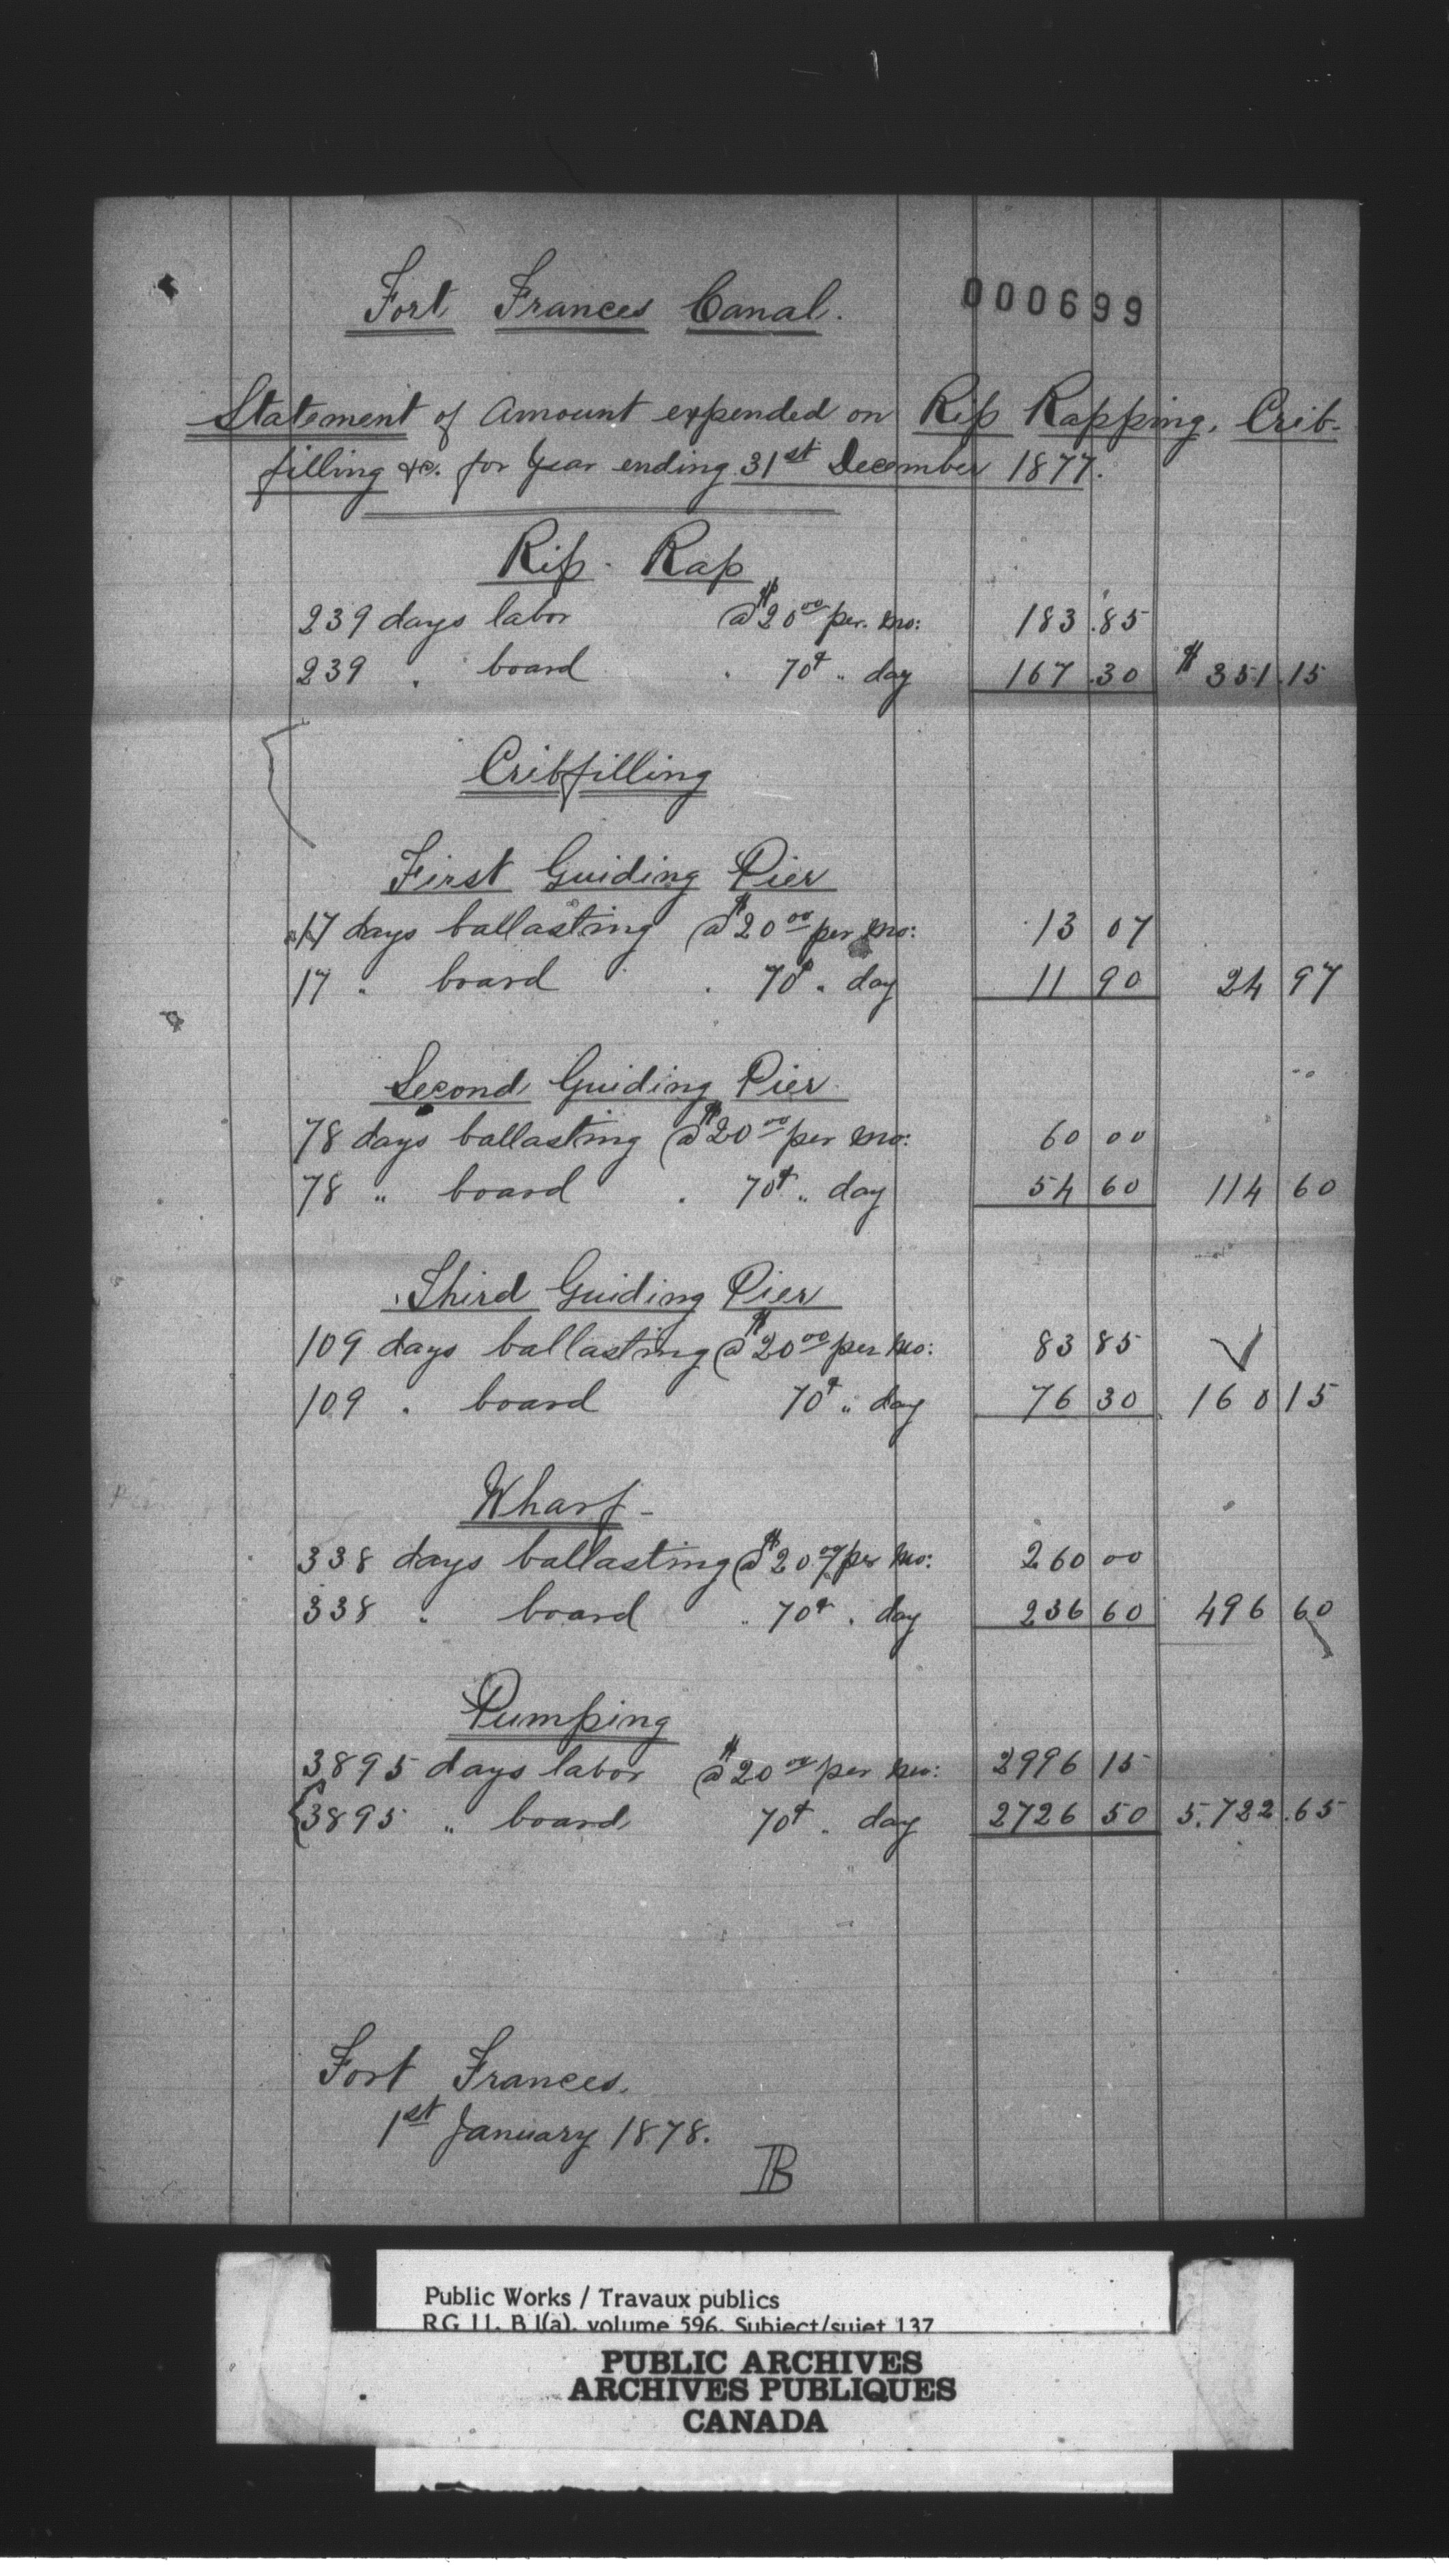 Fort Frances Canal.
000699
Statement of Amount expended on Rip Rapping, Crib-
filling &c. for Year ending 31st December 1877.
Rip-Rap
239 days labor @ $20.00 per. mo: 183.85
239 " board " 70¢ " day 167.30 $351.15
Cribfilling
First Guiding Pier
17 days ballasting @ $20.00 per mo: 13 07
17 " board " 70¢ " day 11 90 24 97
Second Guiding Pier
78 days ballasting @ $20.00 per mo: 60 00
78 " board " 70¢ " day 54 60 114 60
Third Guiding Pier
109 days ballasting @ $20.00 per mo: 83 85
109 " board 70¢ " day 76 30 160 15
Wharf-
338 days ballasting @ $20.00 per mo: 260 00
338 " board " 70¢ " day 236 60 496 60
Pumping
3895 days labor @ $20.00 per mo: 2996 15
3895 " board 70¢ " day 2726 50 5.722.65
Fort Frances,
1st January 1878.
B
Public Works / Travaux publics
RG 11, B 1(a), volume 596, Subject/sujet 137
PUBLIC ARCHIVES
ARCHIVES PUBLIQUES
CANADA